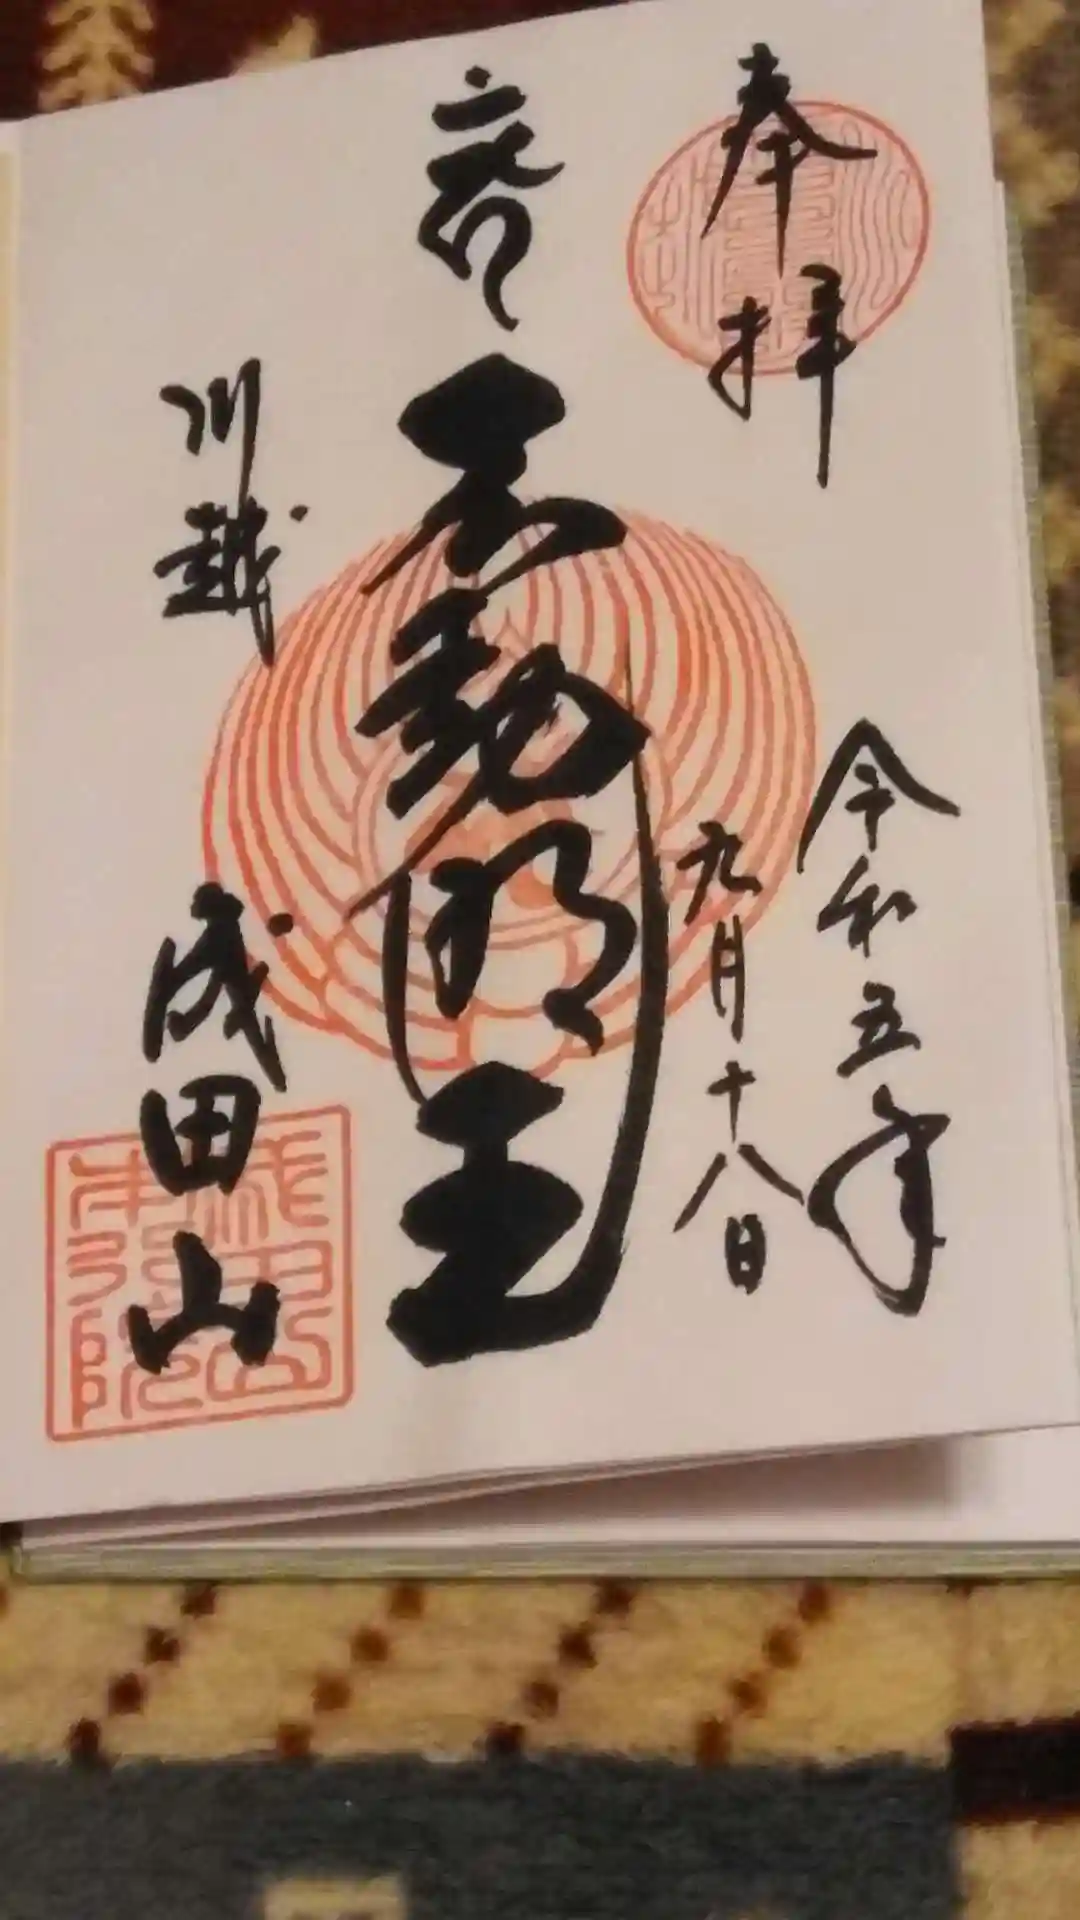 奉拝
令和五年
九月十八日
不動明王
川越
成田山
成田山
本行院